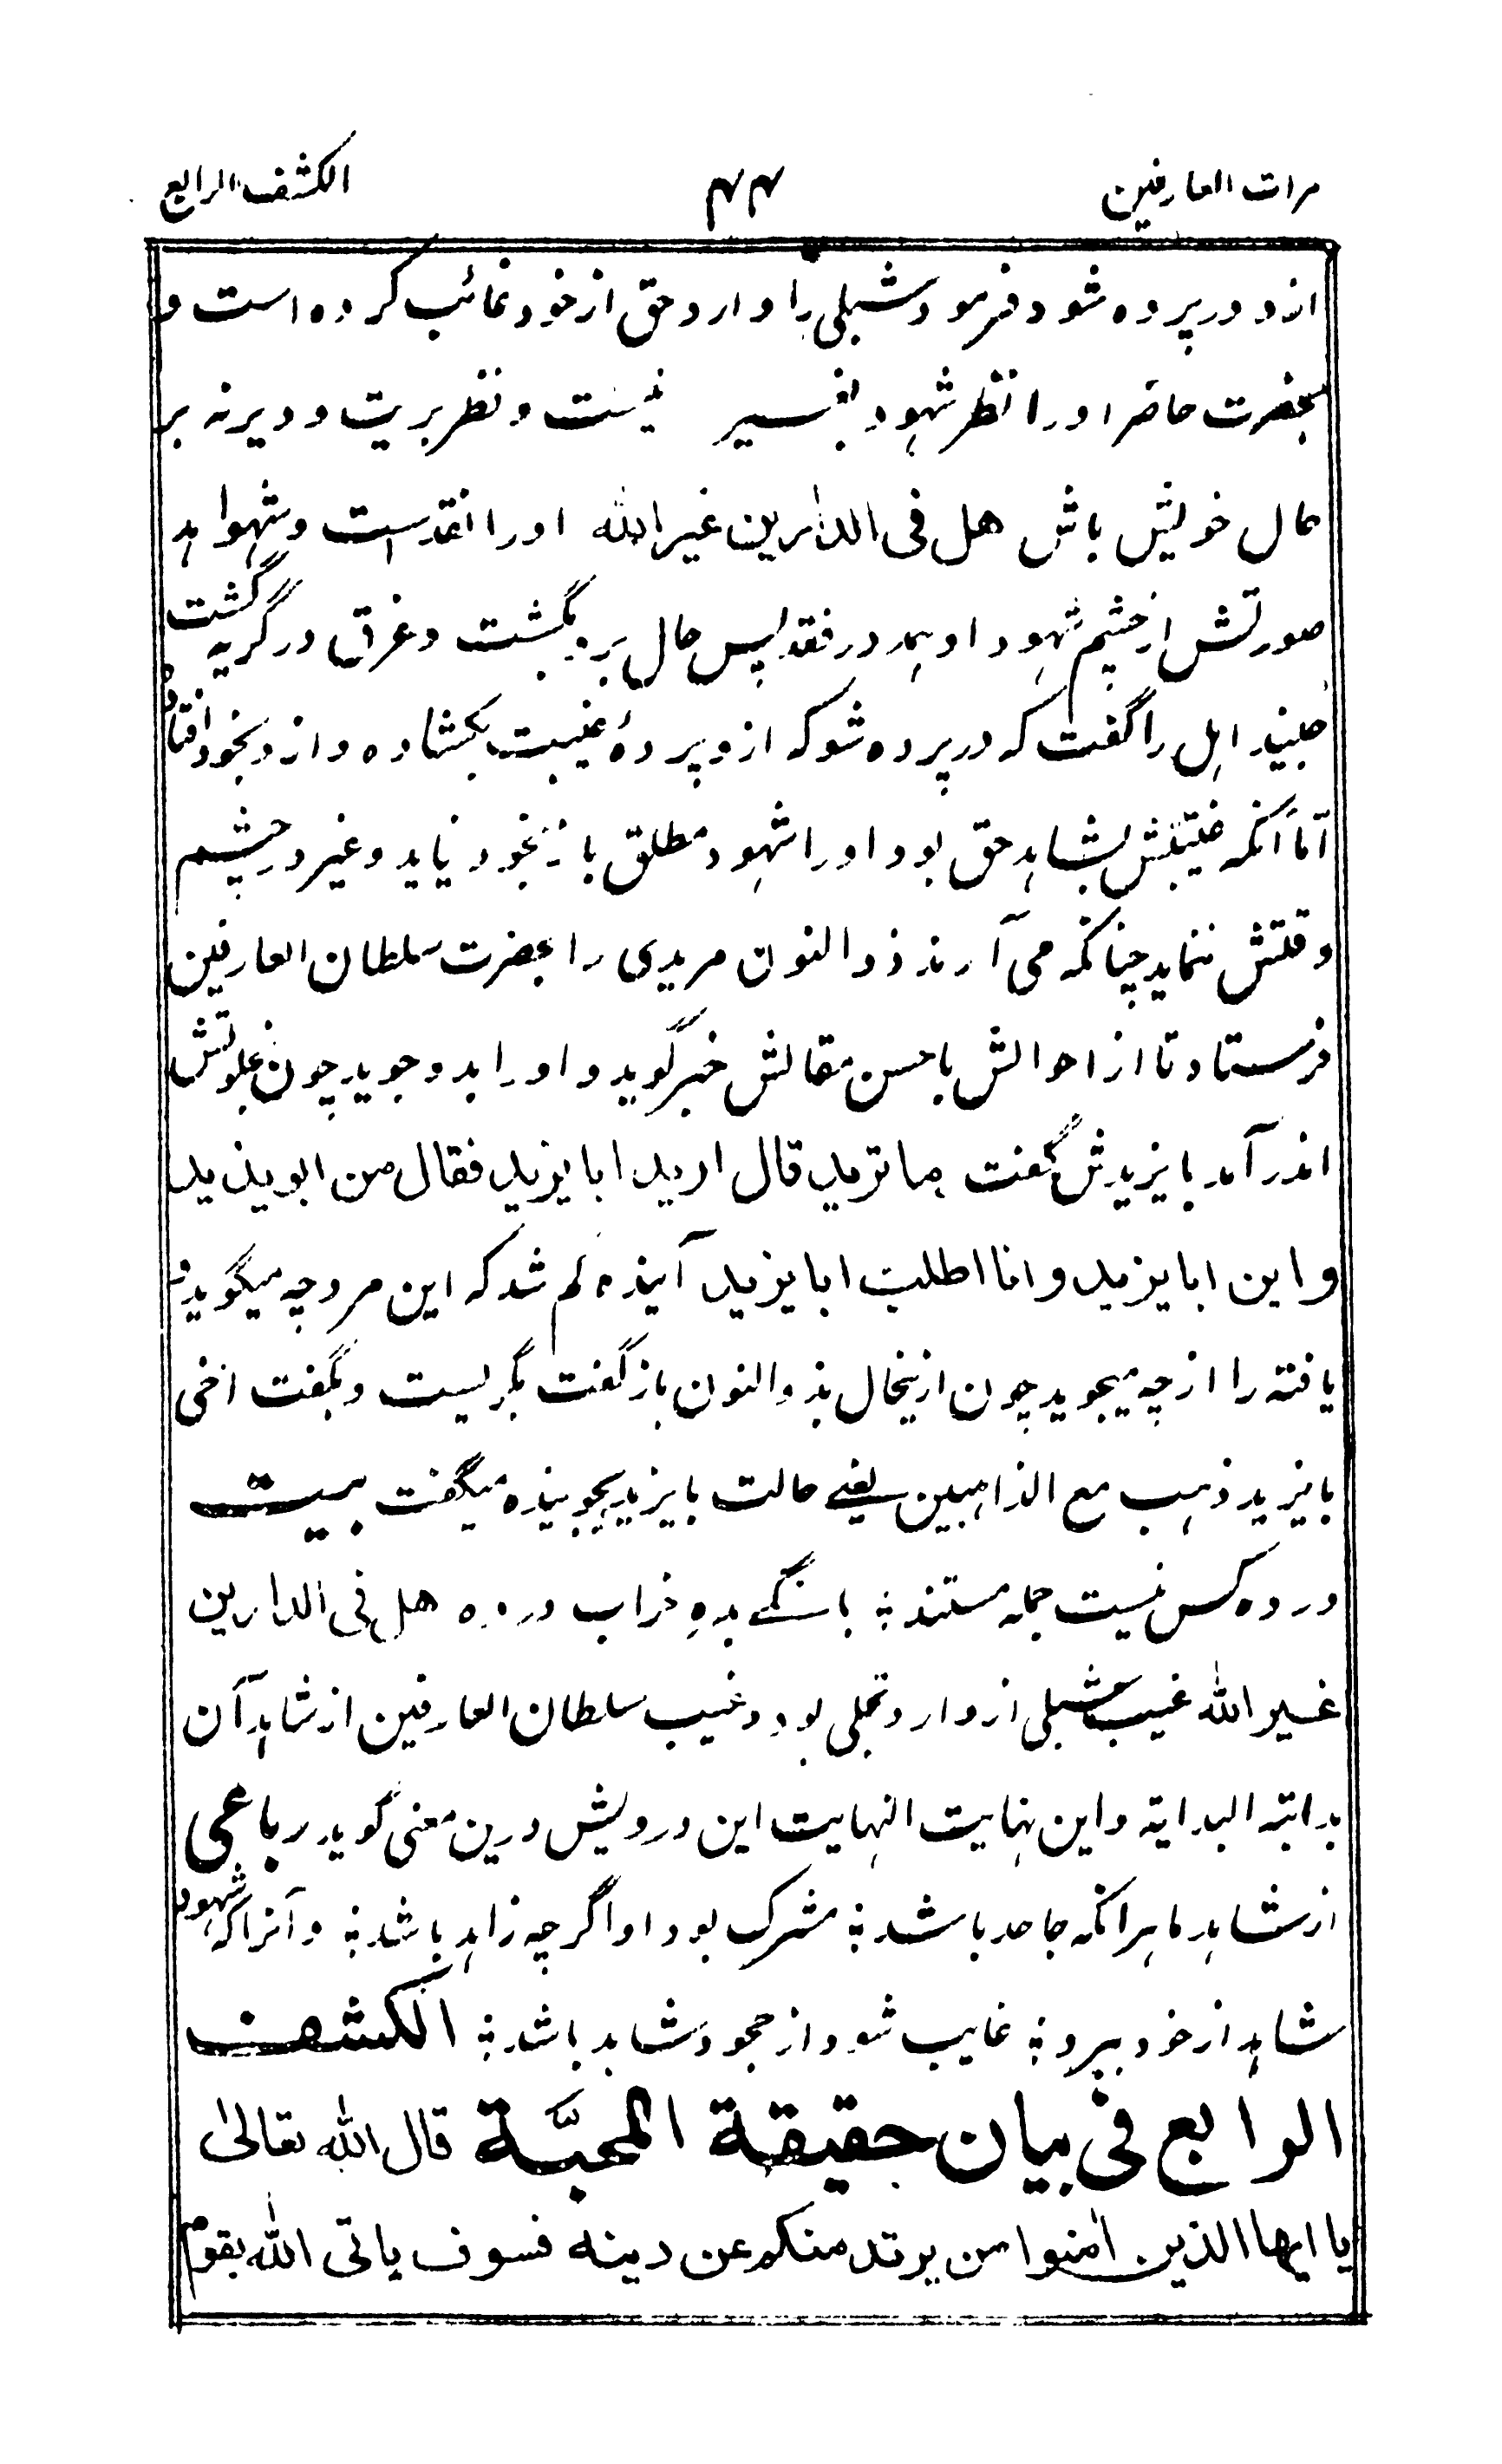 مرات العارفین ۴۴ الکشف الرابع
ازو در پرده شود فرمود شبلی را وارد حق از خود غائب کرده است و
بحضرت حاضر او را نظر شهود بغیر نیست و نظر بریت و دیرنه بر
حال خویش باش هل فی الدارین غیر الله او را نقدست و شهوا بد
صورتش از چشم شهود او بہمہ در فقد پس حال بر و بگشت و غرق در گریہ گشت
جنید اہل را گفت کہ در پرده شو کہ ازو پردهٔ غیبت بکشاده و ازو بخود افتاد
اما آنکہ غیبتش بشاہد حق بود او را شہود مطلق باز بخود نیاید و غیر در چشم
وقتش ننماید چنانکہ می آرند ذوالنون مریدی را بحضرت سلطان العارفین
فرستاد تا از احوالش باحسن مقالش خبر گوید و او را بدو جوید چون بخلوتش
اندر آمد بایزیدش گفت ما ترید قال ارید ابا یزید فقال من ابو یزید
و این ابا یزید و انا اطلب ابا یزید آینده لم شد کہ این مرد چہ میگوید و
یافتہ را از چہ میجوید چون اینحال بذوالنون باز گفت بگریست و بگفت اخی
بایزید ذہب مع الذاہبین یعنے حالت بایزید بجوینده میگفت بیت
در ده کس نیست جملہ مستند ؛ بانگے بده خراب در ده هل فی الدارین
غیر الله غیب شبلی از وارد تجلی بود و غیب سلطان العارفین از شاہد آن
بدایتہ البدایتہ و این نہایت النہایت این درویش درین معنی گوید رباعی
از شاہد ما ہر انکہ جاحد باشد ؛ مشرک بود او اگر چہ زاہد باشد ؛ و آنرا کہ شہود
شاہد از خود ببرد ؛ غایب شود از حجود شاہد باشد ؛ الکشف
الرابع فی بیان حقیقة المحبَّة قال الله تعالیٰ
یا ایها الذین اٰمنوا من یرتد منکم عن دینه فسوف یاتی الله بقوم